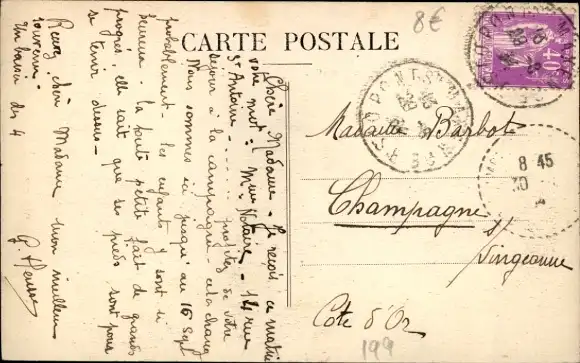 8€
CARTE POSTALE
40
Chère Madame - Je reçois ce matin
votre mot : Mme Notaire - 14 rue
St Antoine. - - - profitez de votre
séjour à la campagne - cela change
Nous sommes ici jusqu'au 15 Sept
probablement - les enfants y sont si
heureux - la toute petite fait de grands
progrès, elle sait que ses pieds sont pour
se tenir dessus -
chère Madame mon meilleur
souvenir.
Un baiser des 4
Madame Barbot
Champagne
s/
Vingeanne
Côte d'Or
8 45
30
199